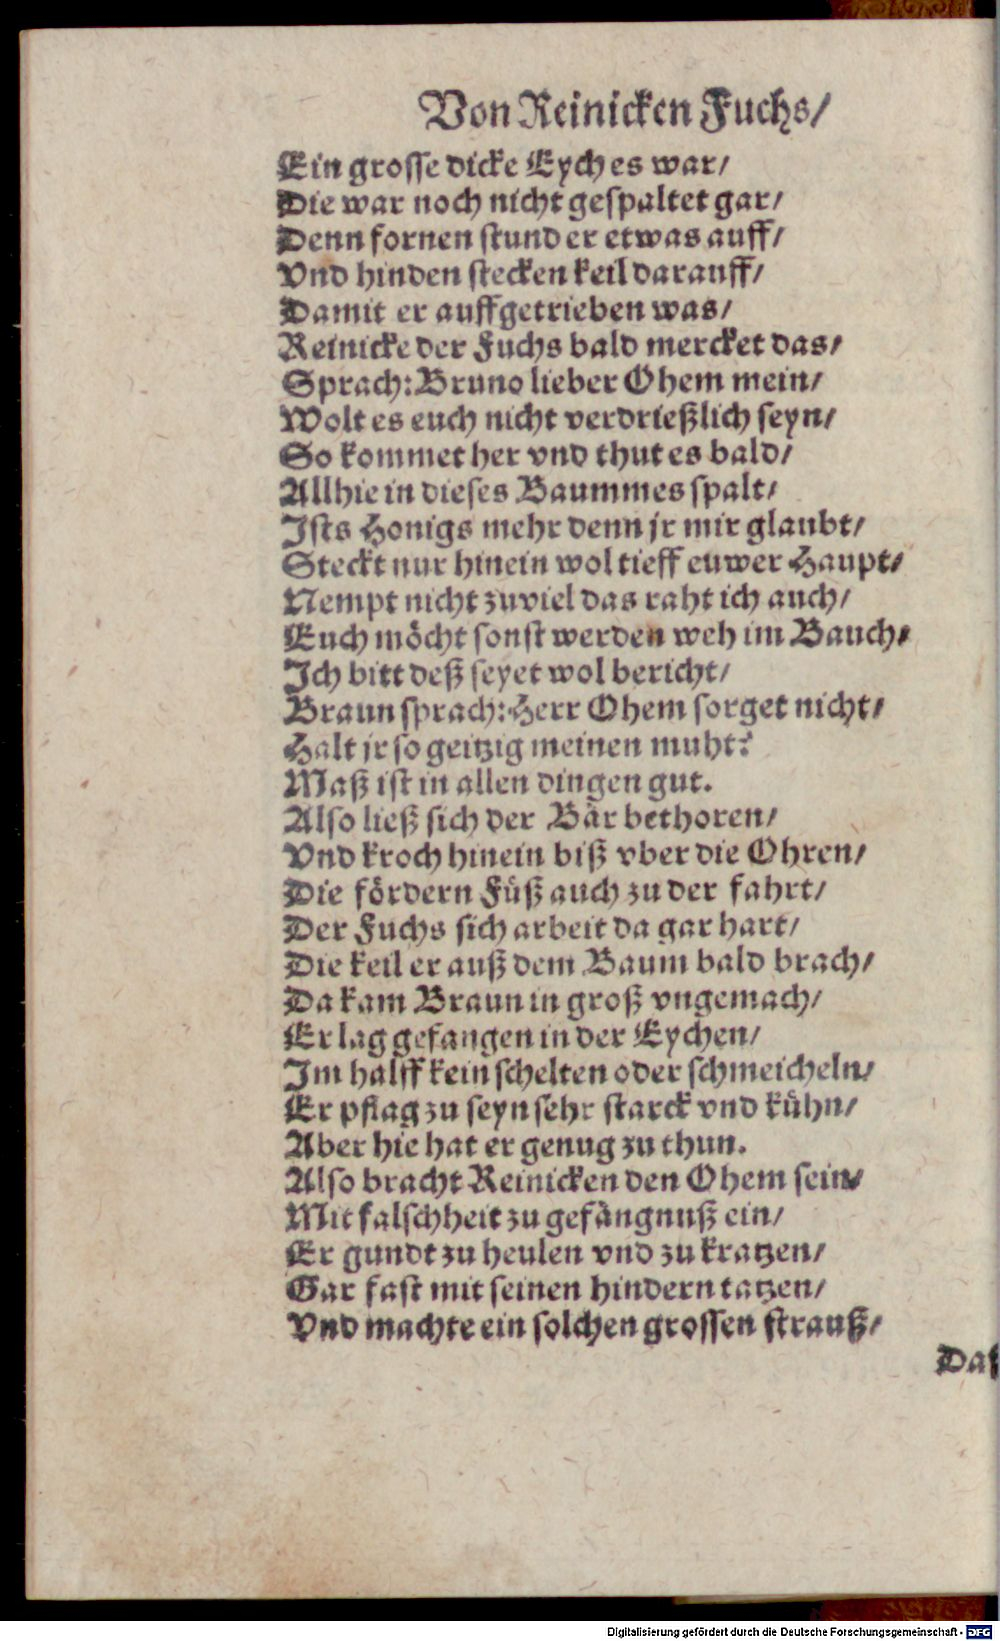 Von Reinicken Fuchs/
Ein grosse dicke Eych es war/
Die war noch nicht gespaltet gar/
Denn fornen stund er etwas auff/
Vnd hinden stecken keil darauff/
Damit er auffgetrieben was/
Reinicke der Fuchs bald mercket das/
Sprach: Bruno lieber Ohem mein/
Wolt es euch nicht verdrießlich seyn/
So kommet her vnd thut es bald/
Allhie in dieses Baummes spalt/
Ists Honigs mehr denn jr mir glaubt/
Steckt nur hinein wol tieff euwer Haupt/
Nempt nicht zuviel das raht ich auch/
Euch möcht sonst werden weh im Bauch/
Ich bitt deß seyet wol bericht/
Braun sprach: Herr Ohem sorget nicht/
Halt jr so geitzig meinen muht?
Maß ist in allen dingen gut.
Also ließ sich der Bär bethoren/
Vnd kroch hinein biß vber die Ohren/
Die fördern Füß auch zu der fahrt/
Der Fuchs sich arbeit da gar hart/
Die keil er auß dem Baum bald brach/
Da kam Braun in groß vngemach/
Er lag gefangen in der Eychen/
Im halff kein schelten oder schmeicheln/
Er pflag zu seyn sehr starck vnd kühn/
Aber hie hat er genug zu thun.
Also bracht Reinicken den Ohem sein/
Mit falschheit zu gefängnuß ein/
Er gundt zu heulen vnd zu kratzen/
Gar fast mit seinen hindern tatzen/
Vnd machte ein solchen grossen strauß/
Digitalisierung gefördert durch die Deutsche Forschungsgemeinschaft - DFG